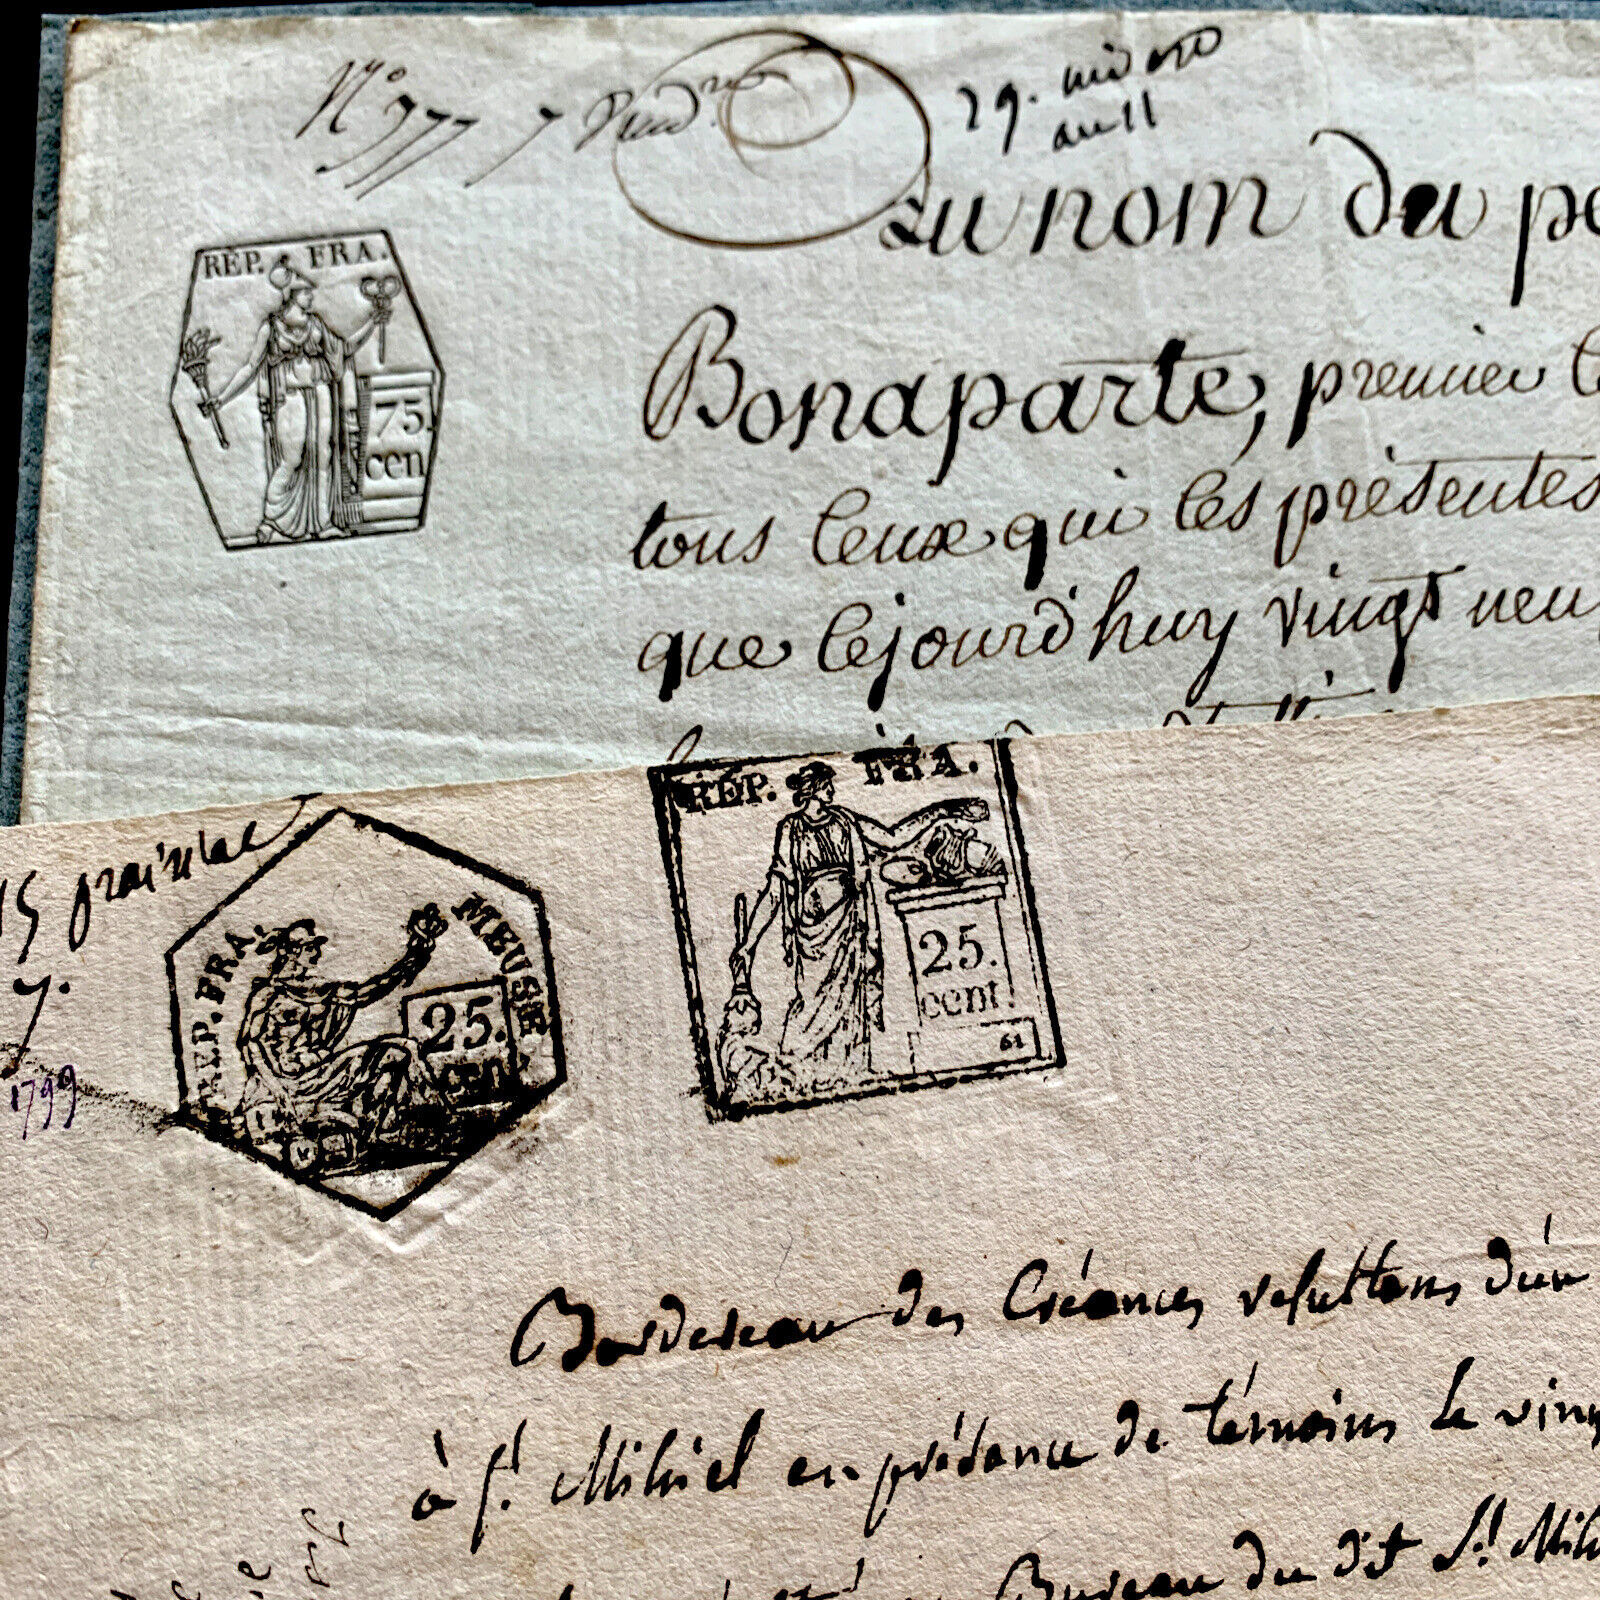 N° 777 7 Vend.re
29.
an 11
REP. FRA.
75.
cen
au nom du pe
Bonaparte, premier
tous ceux qui les présentes
que cejourd'huy vingt neu
15 prairial
7.
1799
REP. FRA. MEUSE
25.
cen
REP. FRA.
25.
cent.
61
Bordereau des Créances resultans d'un
à St. Mihiel en présence de témoins le ving
Bureau du dit St. Mih